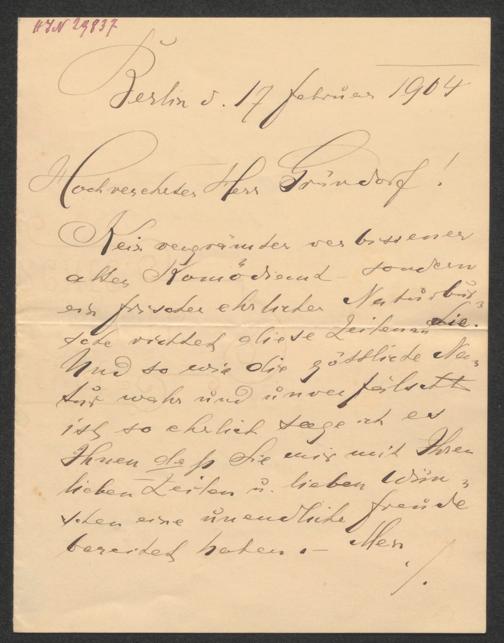 HJN 29837
Berlin d. 17 februar 1904
Hochverehrter Herr Gründorf!
Kein vergrämter verbissener
alter Komödiant sondern
ein frischer ehrlicher Naturbur-
sche richtet diese Zeilen an Sie.
Und so wie die göttliche Na-
tur wahr und unverfälscht
ist, so ehrlich sage ich es
Ihnen daß Sie mir mit Ihren
lieben Zeilen u. lieben Wün-
schen eine unendliche freude
bereitet haben. –
./.